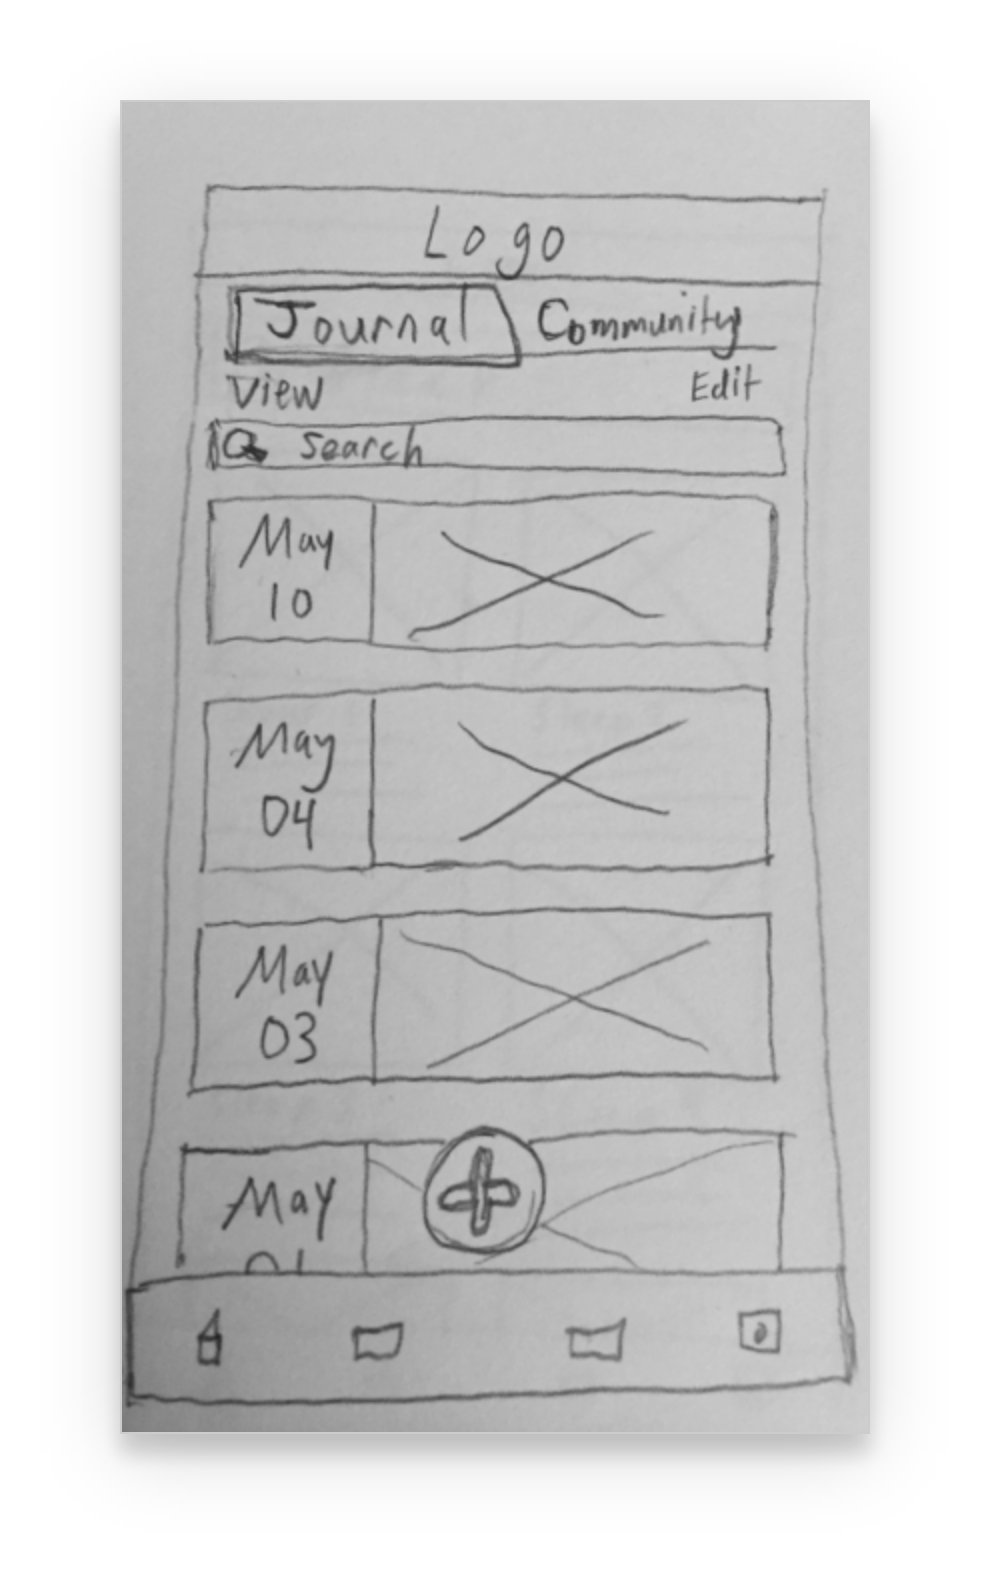 Logo
Journal Community
View Edit
Search
May
10
May
04
May
03
May
01